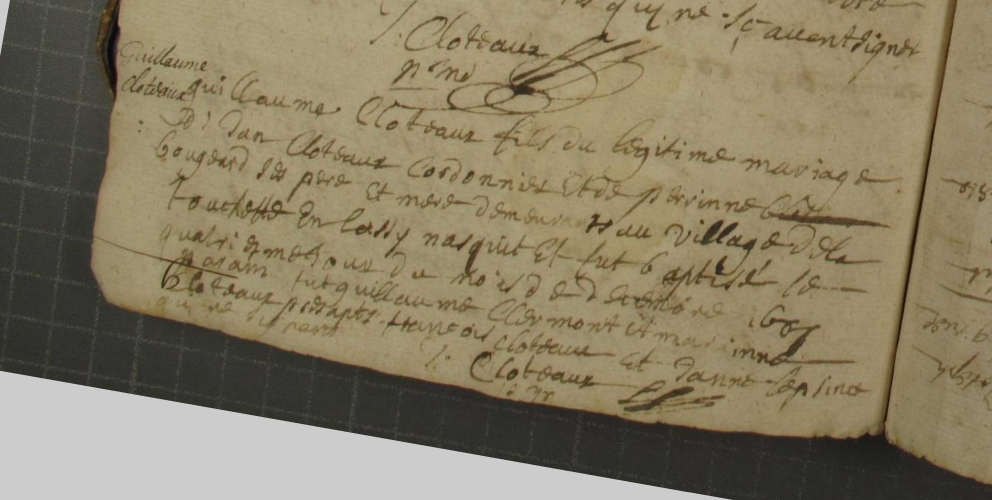 qui ne sçavent signer
J: Cloteaux
Guillaume
Cloteaux
guillaume Cloteaux fils du legitime mariage
D' Jan Cloteaux Cordonnier Et de perrinne
bougeard ses pere Et mere demeurants au village De la
touche En lassy nasquit Et fut baptisé le
quatriesme jour du mois de decembre
parain fut guillaume Clermont Et marinne
Cloteaux presants françois Cloteaux Et Janne
qui ne signent
J: Cloteaux